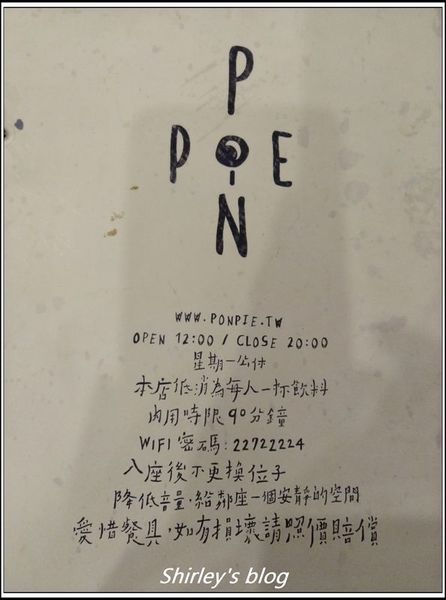 P
P O E
N
WWW.PONPIE.TW
OPEN 12:00 / CLOSE 20:00
星期一公休
本店低消為每人一杯飲料
內用時限90分鐘
WIFI 密碼:22722224
入座後不更換位子
降低音量,給鄰座一個安靜的空間
愛惜餐具,如有損壞請照價賠償
Shirley's blog